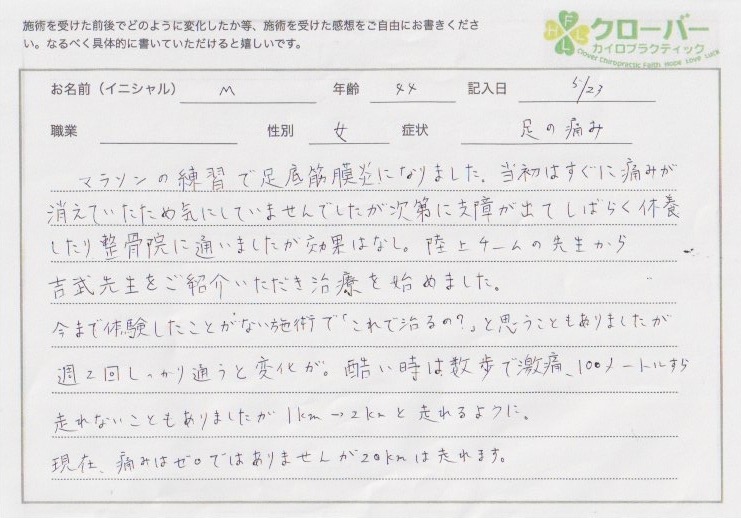 施術を受けた前後でどのように変化したか等、施術を受けた感想をご自由にお書きくださ
い。なるべく具体的に書いていただけると嬉しいです。
FHLL
クローバー
カイロプラクティック
Clover Chiropractic Faith Hope Love Luck
お名前（イニシャル） M 年齢 44 記入日 5/23
職業 性別 女 症状 足の痛み
マラソンの練習で足底筋膜炎になりました。当初はすぐに痛みが
消えていたため気にしていませんでしたが次第に支障が出てしばらく休養
したり整骨院に通いましたが効果はなし。陸上チームの先生から
吉武先生をご紹介いただき治療を始めました。
今まで体験したことがない施術で「これで治るの？」と思うこともありましたが
週2回しっかり通うと変化が。酷い時は数歩で激痛、100メートルすら
走れないこともありましたが1km→2kmと走れるように。
現在、痛みはゼロではありませんが20kmは走れます。